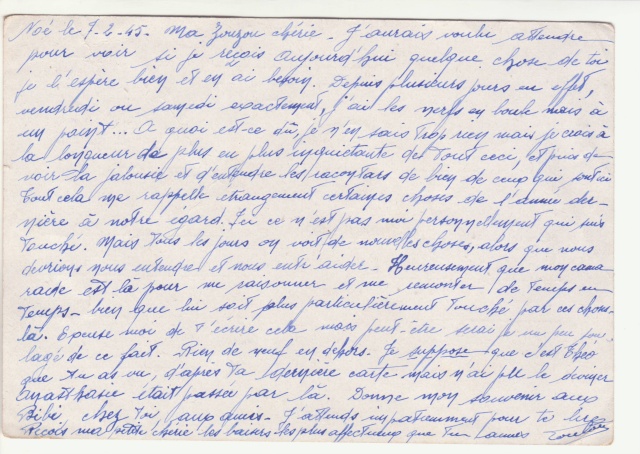 Noé le 7-2-45. Ma Zouzou chérie. J'aurais voulu attendre
pour voir si je reçois aujourd'hui quelque chose de toi
je l'espère bien et en ai besoin. Depuis plusieurs jours en effet,
vendredi ou samedi exactement, j'ai les nerfs en boule mais à
un point... A quoi est-ce dû, je n'en sais trop rien mais je crois à
la longueur de plus en plus inquiétante de tout ceci, et puis de
voir la jalousie et d'entendre les racontars de bien de ceux qui sont ici
Tout cela me rappelle étrangement certaines choses de l'année der-
nière à notre égard. Ici ce n'est pas moi personnellement qui suis
touché. Mais tous les jours on voit de nouvelles choses, alors que nous
devrions nous entendre et nous entr'aider. Heureusement que mon cama
rade est là pour me raisonner et me remonter de temps en
temps - bien que lui soit plus particulièrement touché par ces choses-
là. Excuse moi de t'écrire cela mais peut-être serai je un peu sou-
lagé de ce fait. Rien de neuf en dehors. Je suppose que c'est
que tu as vu, d'après ta dernière carte mais n'ai pu le deviner
Anasthasie était passée par là. Donne mon souvenir aux
Bibi chez toi aux amis. J'attends impatiemment pour te lire
Reçois ma petite chérie les baisers les plus affectueux que Ton